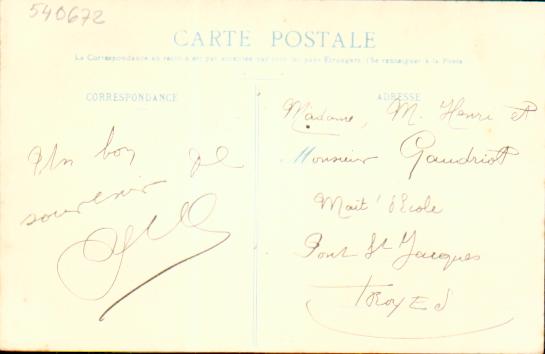 540672
CARTE POSTALE
La Correspondance au recto n'est pas acceptée par tous les pays Etrangers. (Se renseigner à la Poste)
CORRESPONDANCE
ADRESSE
Un bon de
souvenir
Madame, M. Henri et
Monsieur Gaudriot
Mait' d'Ecole
Pont St Jacques
TROYES